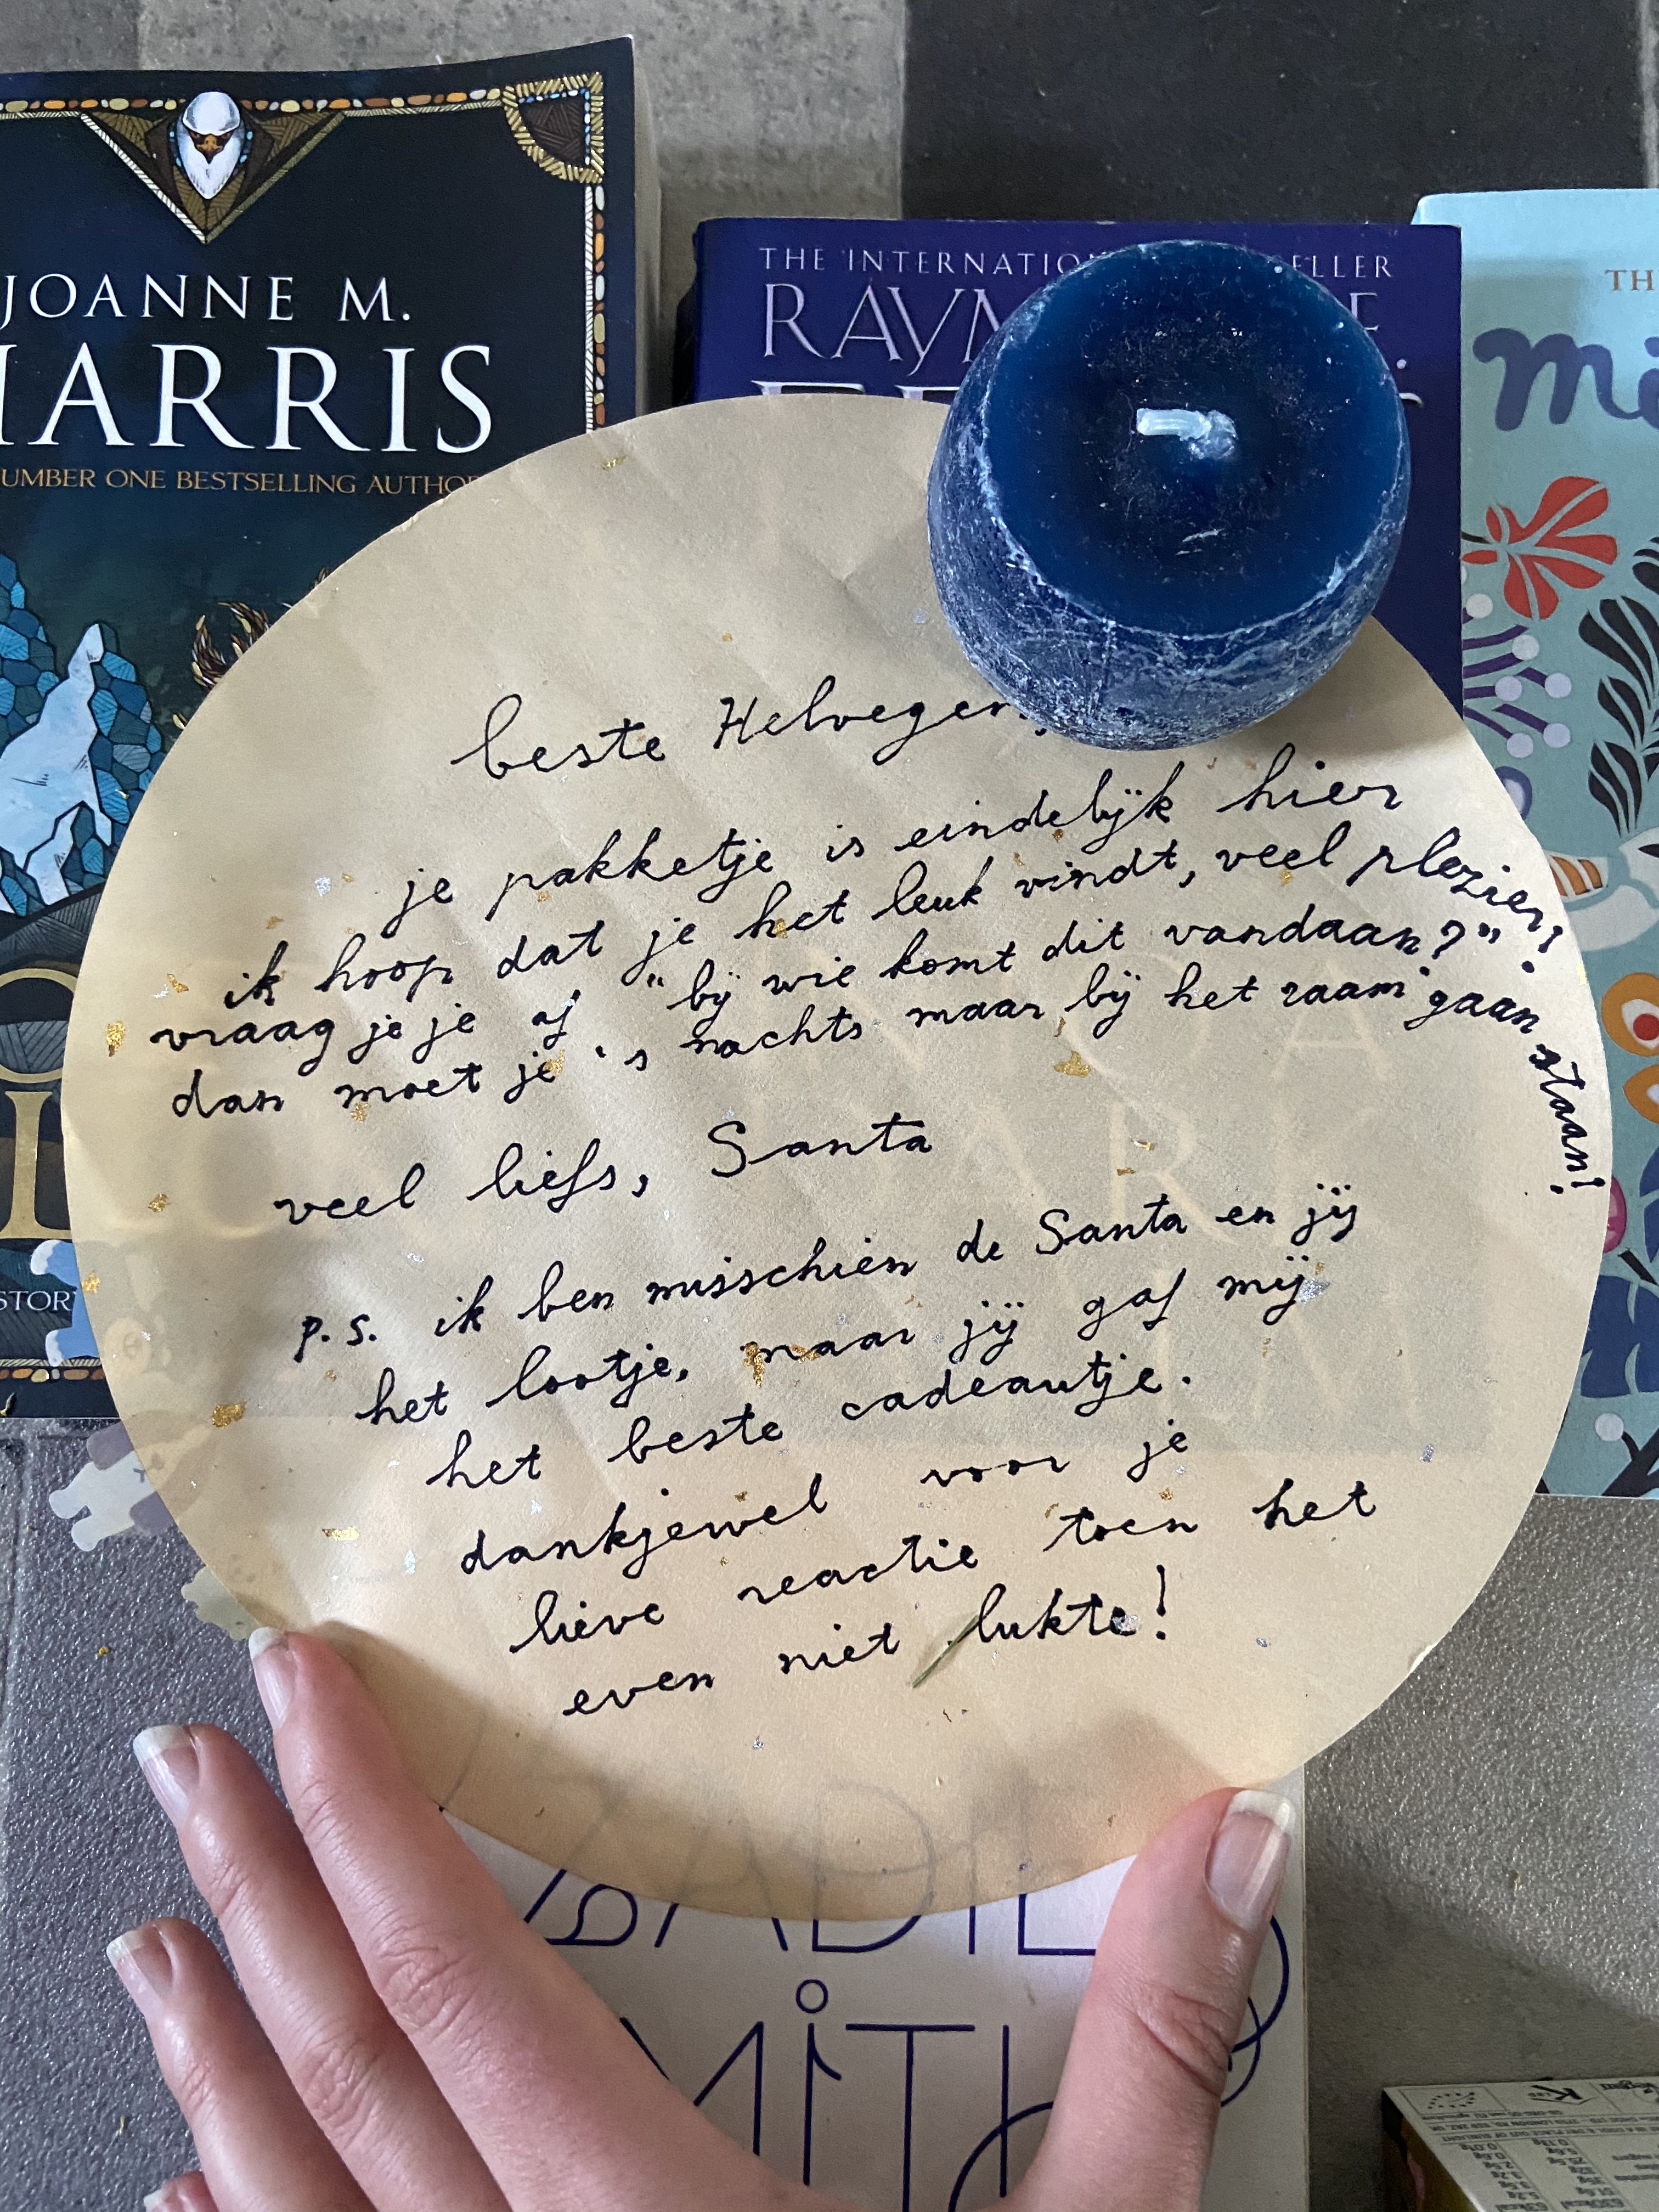 JOANNE M.
HARRIS
NUMBER ONE BESTSELLING AUTHOR
THE INTERNATIONAL BESTSELLER
beste Helvegen,
je pakketje is eindelijk hier
ik hoop dat je het leuk vindt, veel plezier!
vraag je je af "bij wie komt dit vandaan?"
dan moet je 's nachts maar bij het raam gaan staan!
veel liefs, Santa
p.s. ik ben misschien de Santa en jij
het lootje, maar jij gaf mij
het beste cadeautje.
dankjewel voor je
lieve reactie toen het
even niet lukte!
ZADIE
SMITH